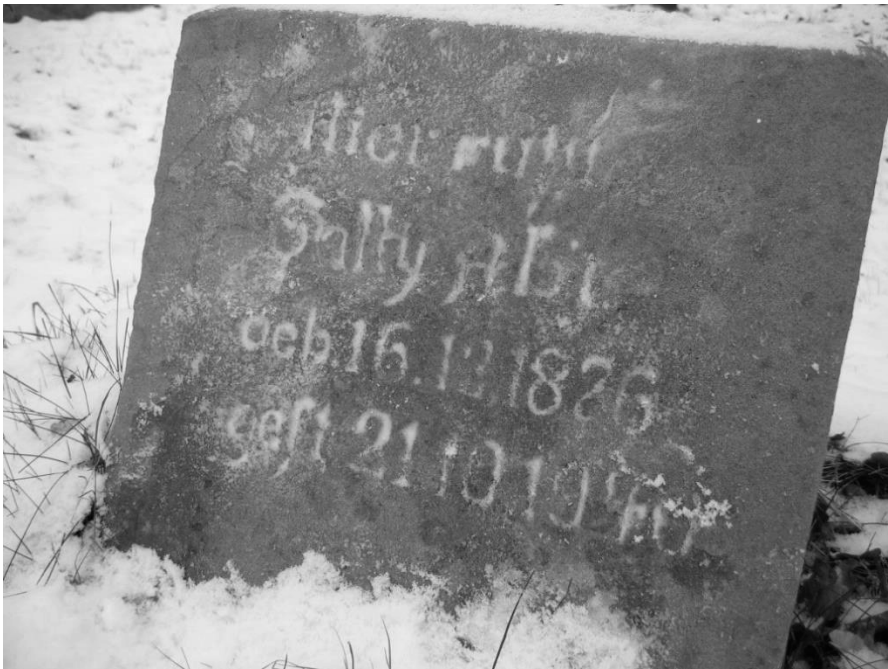 Hier ruht
Sally Abt
geb. 16.12.1826
gest 21 10 1910